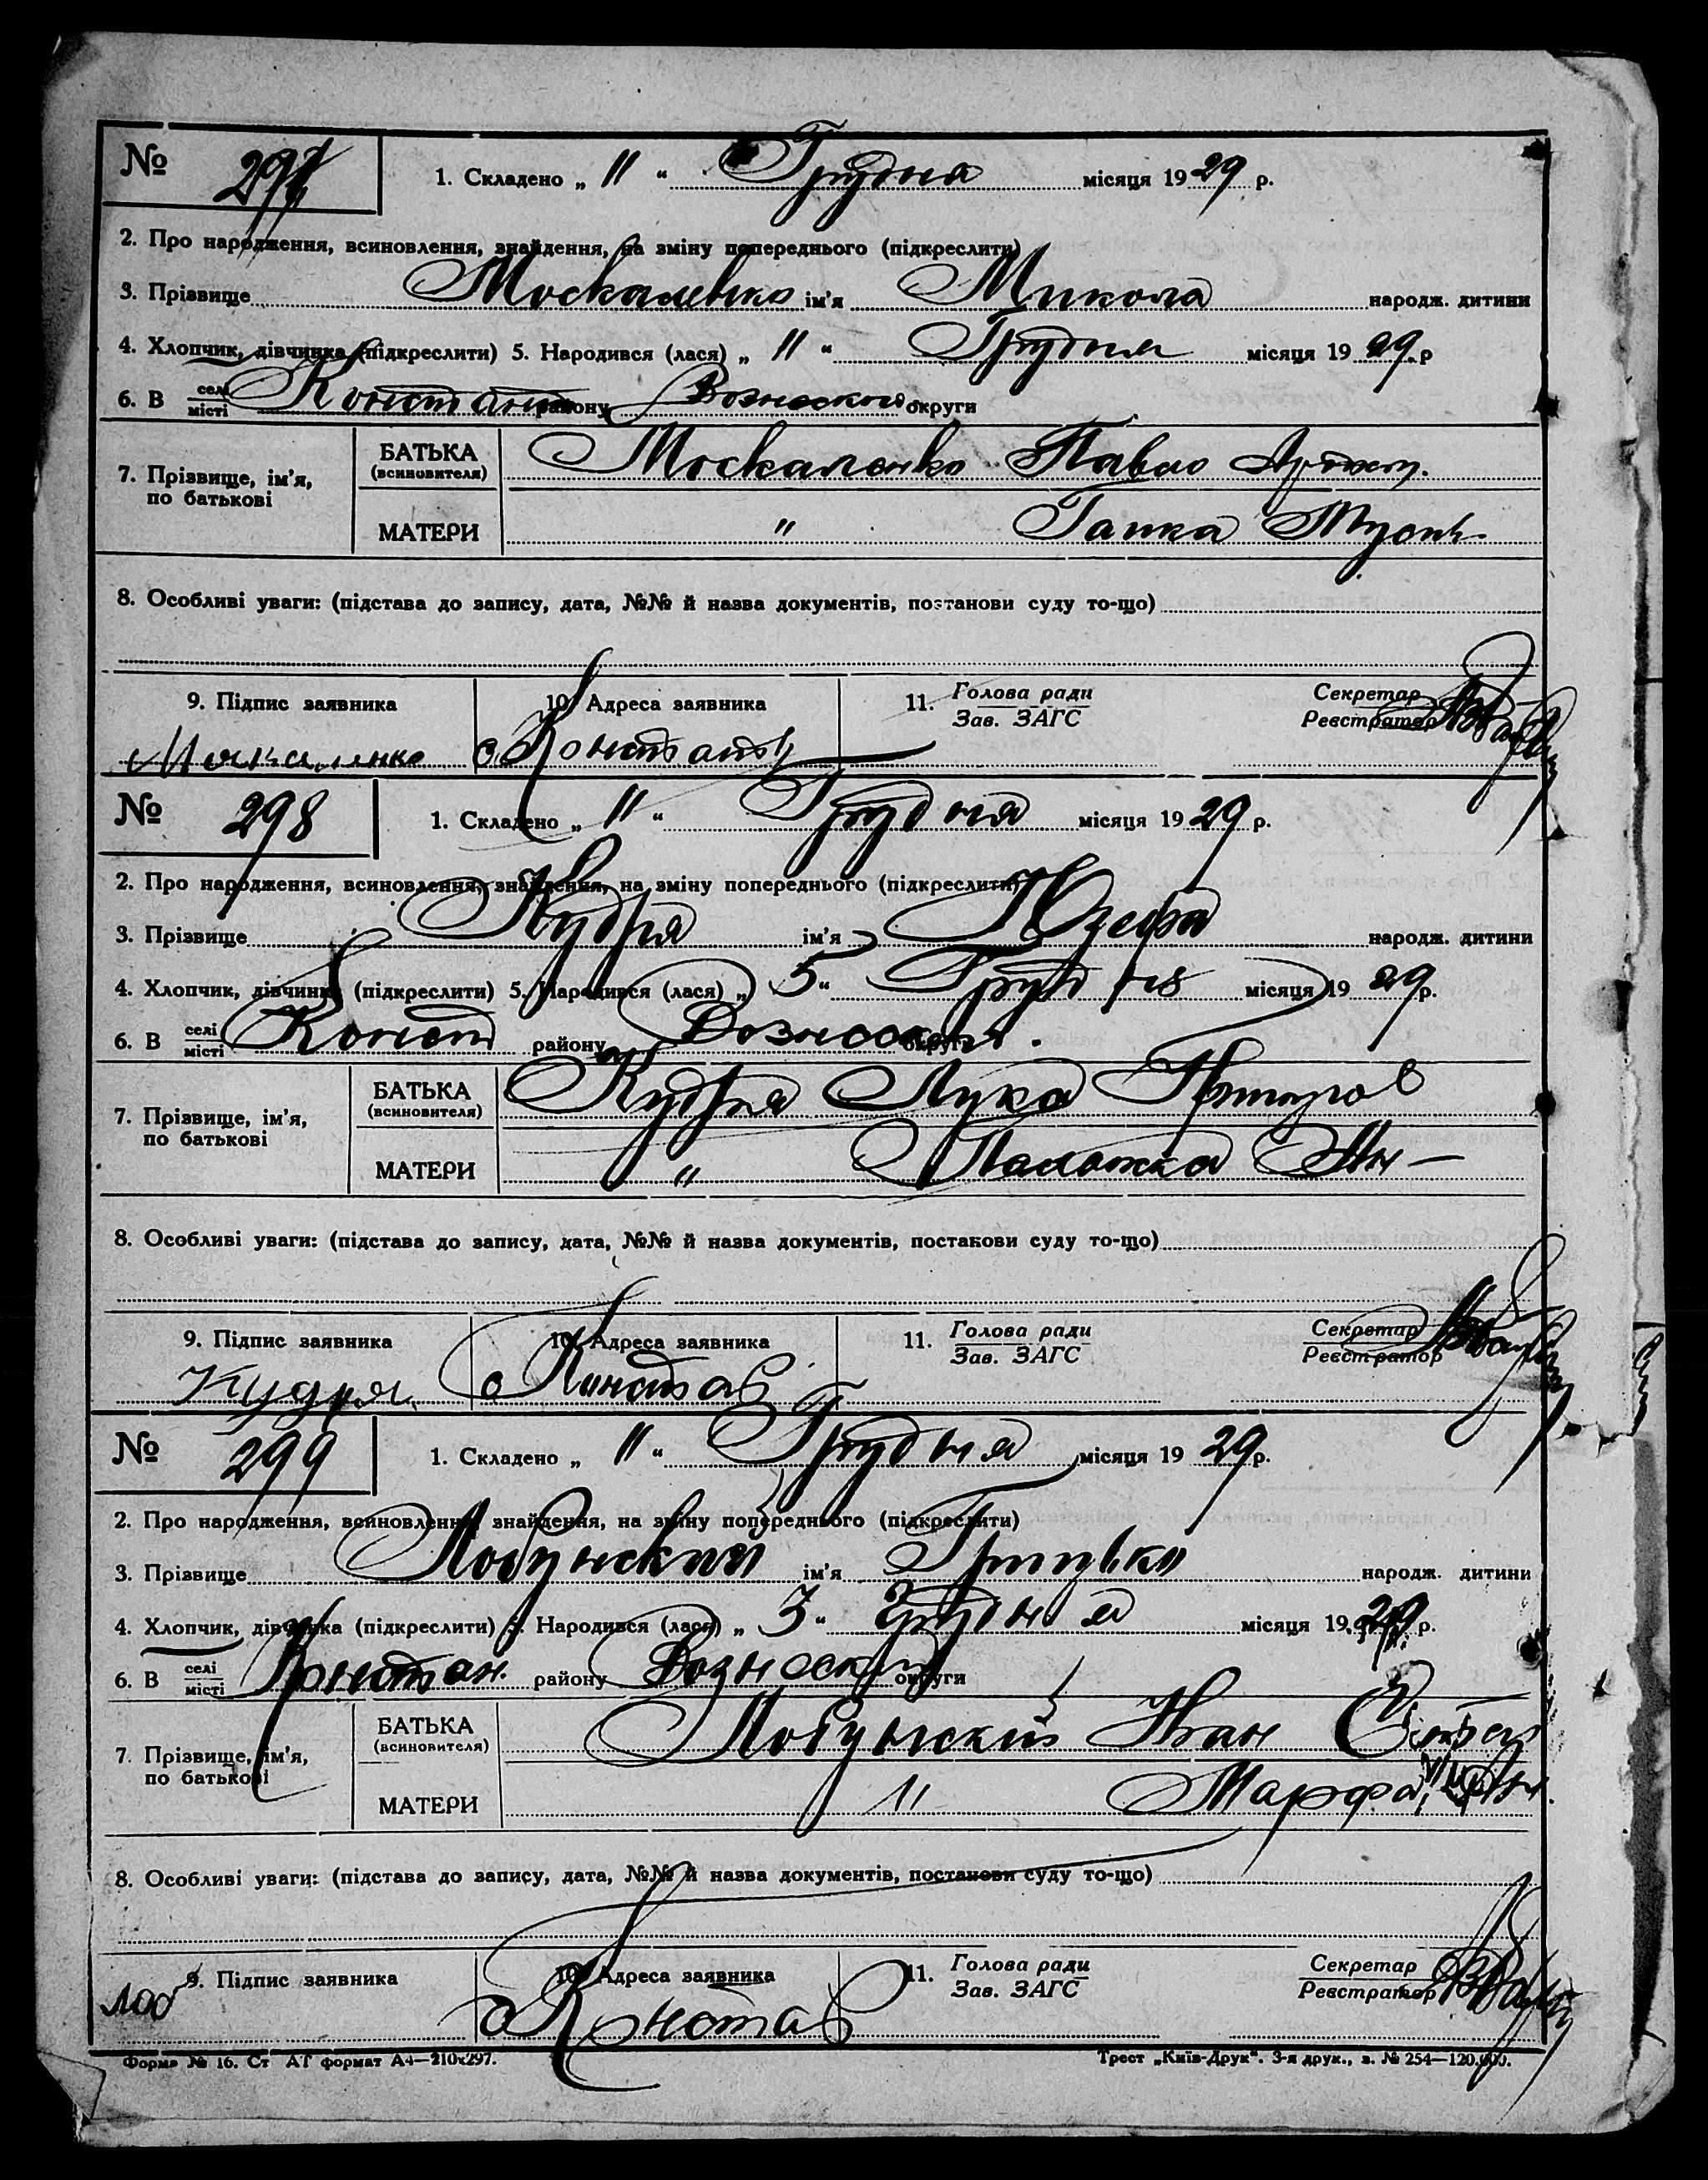 № 297
1. Складено „ 11 “ Грудня місяця 1929 р.
2. Про народження, всиновлення, знайдення, на зміну попереднього (підкреслити)
3. Прізвище Москаленко ім'я Микола народж. дитини
4. Хлопчик, дівчинка (підкреслити) 5. Народився (лася) „ 11 “ Грудня місяця 1929 р
6. В селі місті Констант району округи
7. Прізвище, ім'я, по батькові
БАТЬКА (всиновителя) Москаленко Павло
МАТЕРИ " Гапка
8. Особливі уваги: (підстава до запису, дата, №№ й назва документів, постанови суду то-що)
9. Підпис заявника 10. Адреса заявника 11. Голова ради Зав. ЗАГС Секретар Реєстратор
Москаленко с Констант
№ 298
1. Складено „ 11 “ Грудня місяця 1929 р.
2. Про народження, всиновлення, знайдення, на зміну попереднього (підкреслити)
3. Прізвище Кудря ім'я Юзефа народж. дитини
4. Хлопчик, дівчинка (підкреслити) 5. Народився (лася) „ 5 “ Грудня місяця 1929 р.
6. В селі місті Конст району округи
7. Прізвище, ім'я, по батькові
БАТЬКА (всиновителя) Кудря Лука
МАТЕРИ "
8. Особливі уваги: (підстава до запису, дата, №№ й назва документів, постанови суду то-що)
9. Підпис заявника 10. Адреса заявника 11. Голова ради Зав. ЗАГС Секретар Реєстратор
Кудря с Конста
№ 299
1. Складено „ 11 “ Грудня місяця 1929 р.
2. Про народження, всиновлення, знайдення, на зміну попереднього (підкреслити)
3. Прізвище ім'я народж. дитини
4. Хлопчик, дівчинка (підкреслити) 5. Народився (лася) „ 3 “ Грудня місяця 1929 р.
6. В селі місті Констан. району округи
7. Прізвище, ім'я, по батькові
БАТЬКА (всиновителя) Іван
МАТЕРИ " Марфа
8. Особливі уваги: (підстава до запису, дата, №№ й назва документів, постанови суду то-що)
9. Підпис заявника 10. Адреса заявника 11. Голова ради Зав. ЗАГС Секретар Реєстратор
с Конста
Форма № 16. Ст АГ формат А4—210х297. Трест „Київ-Друк“. 3-я друк., з. № 254—120.000.